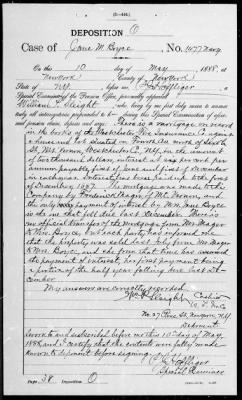 (3-446.)
DEPOSITION O
Case of Jane M. Boyce, No. 1477 Navy
On this 10 day of May, 1888, at
New York, County of New York
State of N.Y., before me, C. F. Loffliger, a
Special Examiner of the Pension Office, personally appeared
William F. Sleight, who, being by me first duly sworn to answer
truly all interrogatories propounded to him during this Special Examination of aforesaid
pension claim, deposes and says: There is a mortgage on record
in the books of the Westchester Fire Insurance Co. against
a house and lot situated on Fourth Ave. north of Sixth
St., Mt. Vernon, Westchester Co., N.Y., in the amount
of two thousand dollars, interest at six per cent per
annum payable first of June and first of December
in each year. Interest has been paid up to the first
of December, 1887. The mortgage was made to the
Company by Frederick Mager of Mt. Vernon, and
the only payment of interest by Mrs. Jane Boyce
was the one that fell due last December. There is
no official transfer of the mortgage from Mr. Mager
to Mrs. Boyce, but said party had informed me
that the property was sold last July from Mr. Mager
to Mrs. Boyce, and she from that time has assumed
the payment of interest, her first payment being
a portion of the half year falling due last December.
My answers are correctly recorded.
Wm. F. Sleight Cashier
W. F. Ins. Co.
No. 27 Pine St., New York, N.Y.
Deponent.
Sworn to and subscribed before me this 10 day of May,
1888, and I certify that the contents were fully made
known to deponent before signing.
C. F. Loffliger
Special Examiner.
Page 38 Deposition O